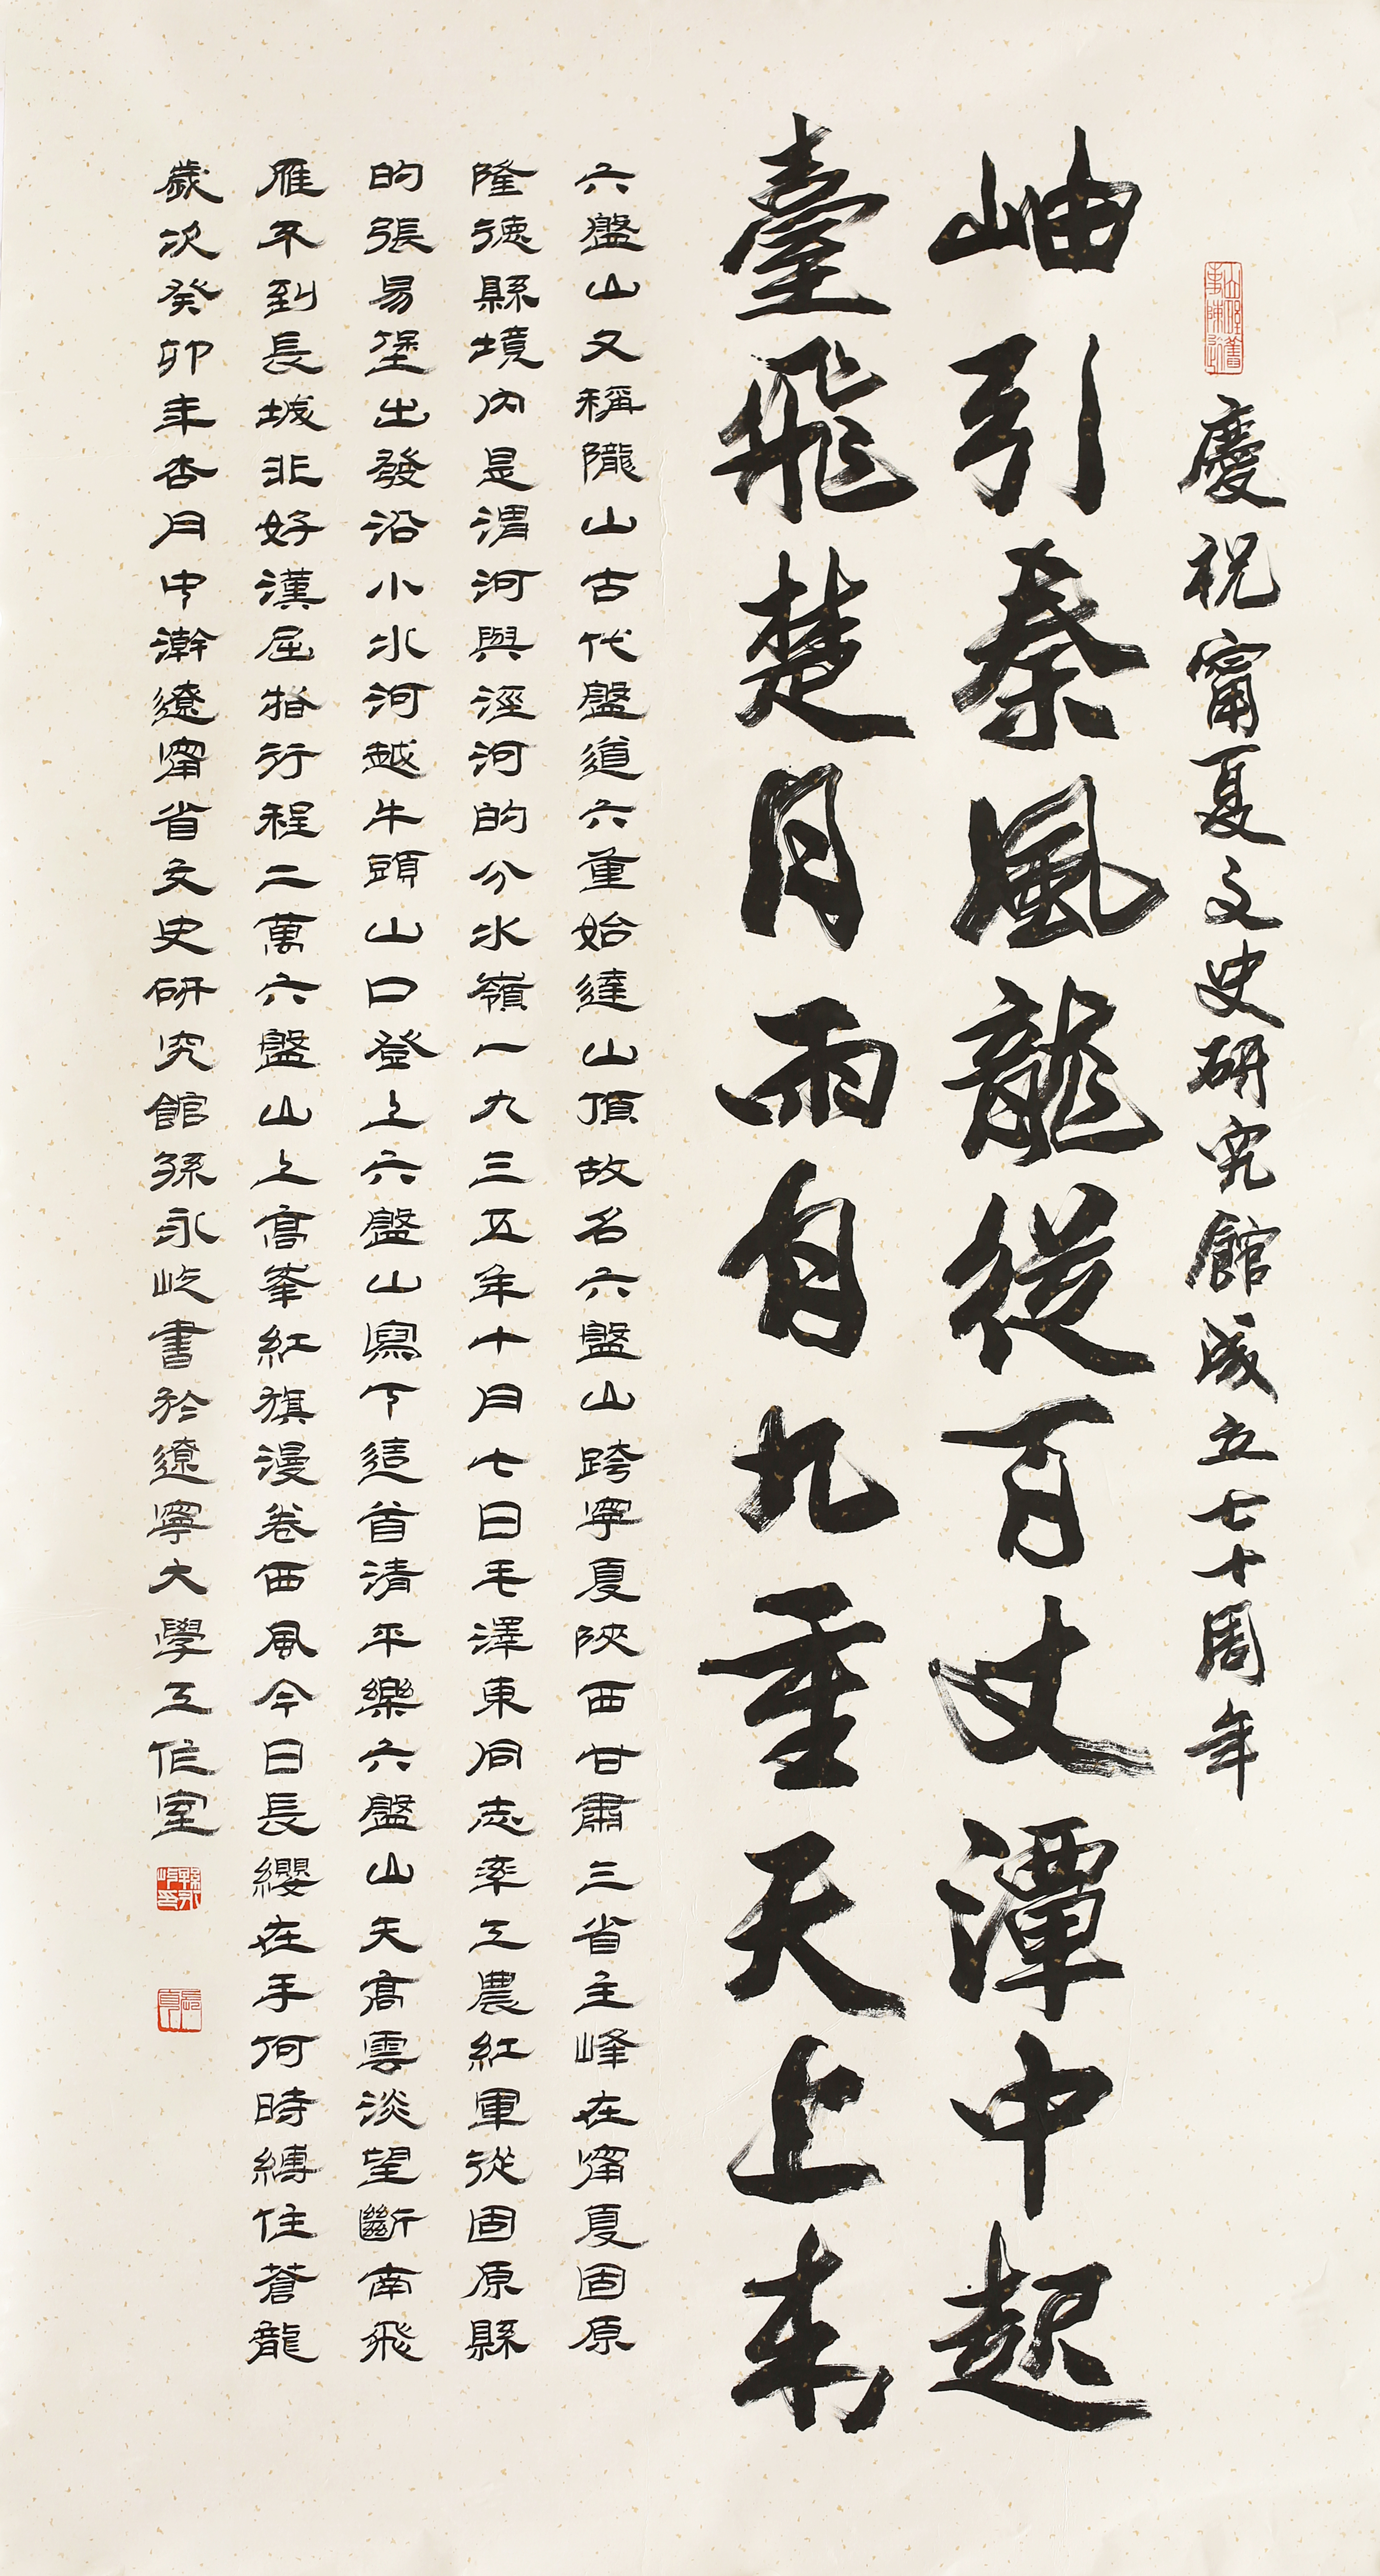 慶祝甯夏文史研究館成立七十周年
岫引秦風龍從百丈潭中起
臺飛楚月雨自九重天上來
六盤山又稱隴山古代盤道六重始達山頂故名六盤山跨寧夏陝西甘肅三省主峰在甯夏固原
隆德縣境內是渭河與涇河的分水嶺一九三五年十月七日毛澤東同志率工農紅軍從固原縣
的張易堡出發沿小水河越牛頭山口登上六盤山寫下這首清平樂六盤山天高雲淡望斷南飛
雁不到長城非好漢屈指行程二萬六盤山上高峯紅旗漫卷西風今日長纓在手何時縛住蒼龍
歲次癸卯年杏月中澣遼甯省文史研究館孫永屹書於遼寧大學工作室